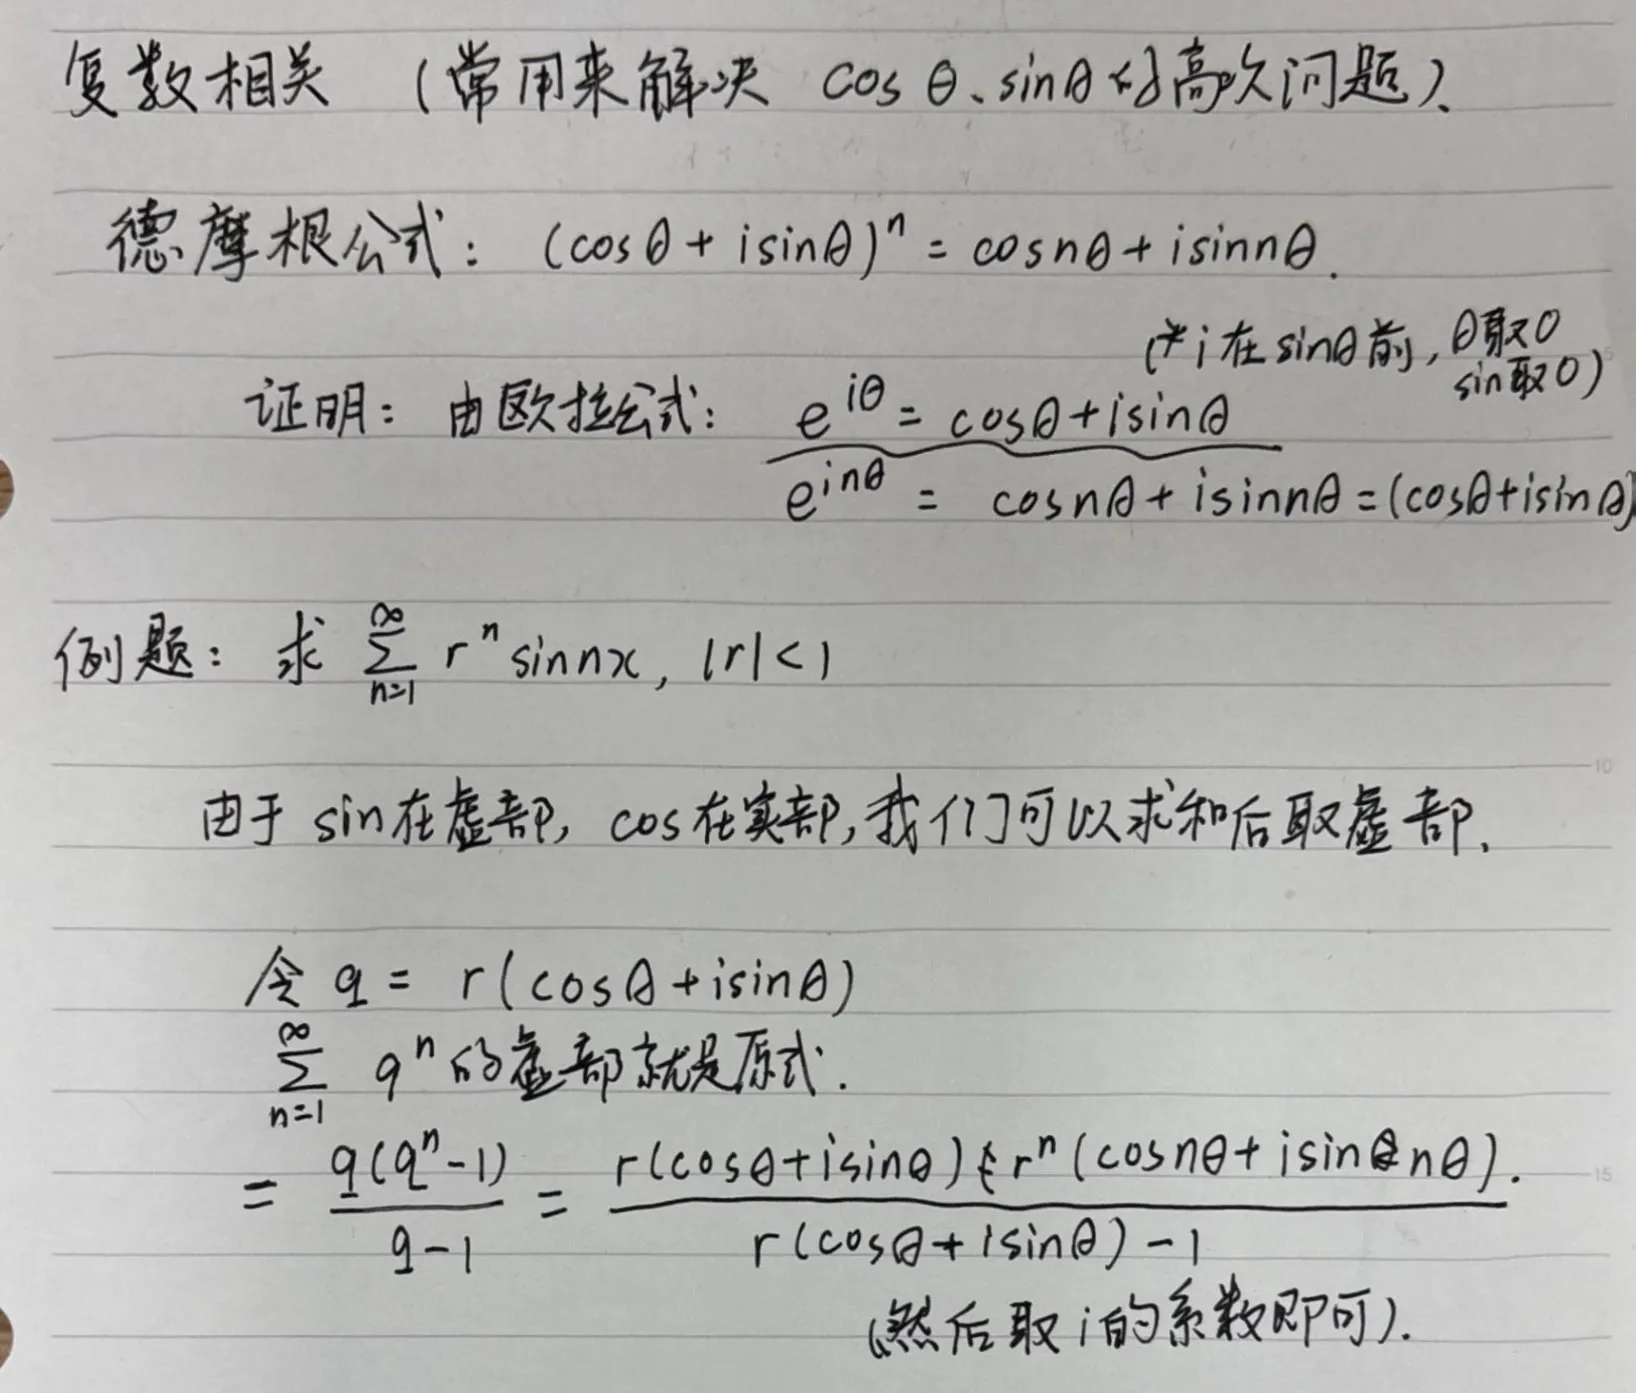 复数相关 (常用来解决 cosθ、sinθ的高次问题).
德摩根公式: (cosθ + isinθ)ⁿ = cosnθ + isinnθ.
(*i在sinθ前, θ取0
sin取0)
证明: 由欧拉公式: e^{iθ} = cosθ + isinθ
e^{inθ} = cosnθ + isinnθ = (cosθ + isinθ)
例题: 求 ∑_{n=1}^{∞} rⁿ sinnx, |r|<1
由于 sin在虚部, cos在实部, 我们可以求和后取虚部.
令 q = r(cosθ + isinθ)
∑_{n=1}^{∞} qⁿ 的虚部就是原式.
= q(qⁿ-1)/(q-1) = r(cosθ+isinθ) rⁿ(cosnθ + isin nθ). / r(cosθ + isinθ) - 1
(然后取i的系数即可).
10
15